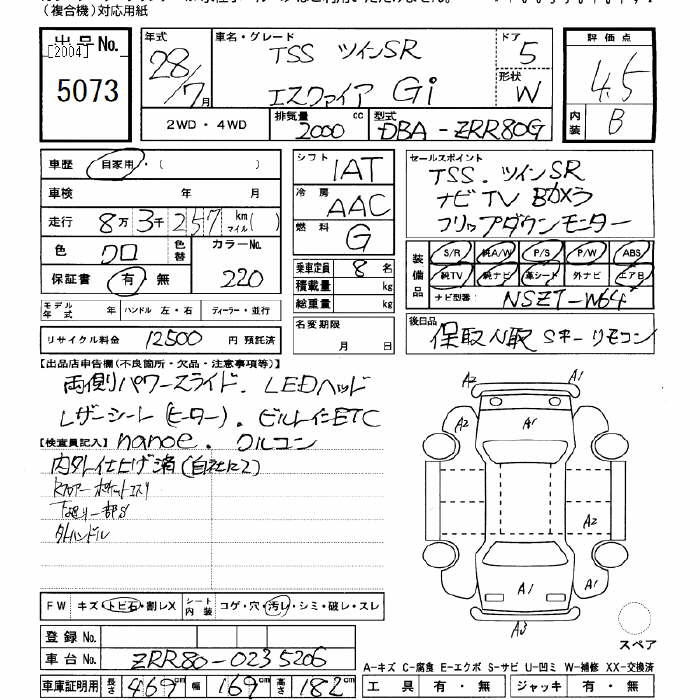 (複合機)対応用紙
出品No.
[2004]
5073
年式
28/7月
車名・グレード
TSS ツインSR
エスクァイア Gi
ドア
5
形状
W
評価点
4.5
内装
B
2WD・4WD
排気量
2000 cc
型式
DBA-ZRR80G
車歴 自家用・( )
車検 年 月
走行 8万3千257 km マイル( )
色 クロ 色替 カラーNo. 220
保証書 有・無
モデル年式 年 ハンドル 左・右 ディーラー・並行
リサイクル料金 12500 円 預託済
シフト IAT
冷房 AAC
燃料 G
乗車定員 8 名
積載量 kg
総重量 kg
名変期限
月 日
セールスポイント
TSS. ツインSR
ナビTV Bカメラ
フリップダウンモニター
装備品
S/R 純A/W P/S P/W ABS
純TV 純ナビ 革シート 外ナビ エアB
ナビ型番: NSZT-W64
後日品
保取 N取 Sキー リモコン
【出品店申告欄(不良箇所・欠品・注意事項等)】
両側パワースライド. LEDヘッド
レザーシート(ヒーター). ビルトインETC
【検査員記入】 nanoe. クルコン
内外仕上げ済(自社にて)
外ハンドル
A2 A1
A1
A2
A2
A1
A1
A3
スペア
FW キズ・トビ石・割レX シート内装 コゲ・穴・汚レ・シミ・破レ・スレ
登録No.
車台No. ZRR80-0235206
車庫証明用 長さ 469cm 幅 169cm 高さ 182cm
A-キズ C-腐食 E-エクボ S-サビ U-凹ミ W-補修 XX-交換済
工具 有・無 ジャッキ 有・無